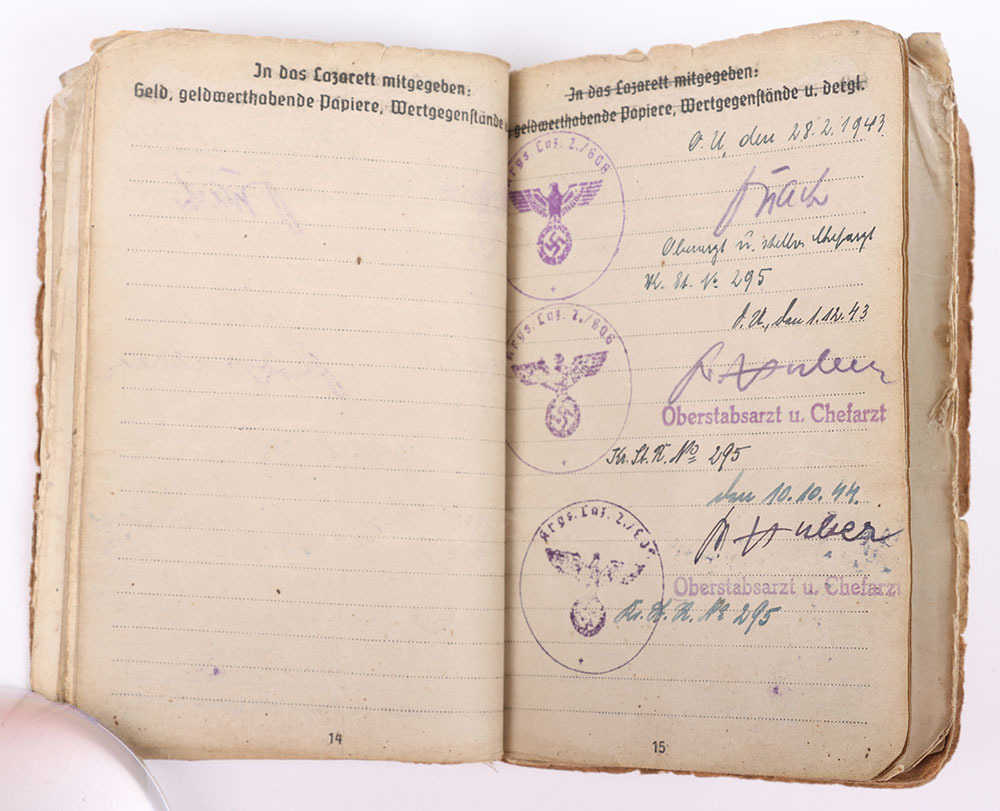 In das Lazarett mitgegeben:
Geld, geldwerthabende Papiere, Wertgegenstände
14
In das Lazarett mitgegeben:
geldwerthabende Papiere, Wertgegenstände u. dergl.
O.U, den 28.2.1943
Krgs. Laz. 2./608
Oberarzt u. stellv. Chefarzt
Kr. St. Nr 295
O.U., den 1.12.43
Krgs. Laz. 2./606
Dr. Huber
Oberstabsarzt u. Chefarzt
Kr. St. N. No 295
den 10.10.44.
Krgs. Laz. 2./
Dr. Huber
Oberstabsarzt u. Chefarzt
Kr. St. N. No 295
15